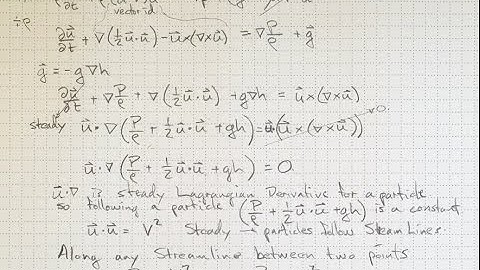 ∂u⃗/∂t
vector id
÷ρ
∂u⃗/∂t + ∇(½u⃗·u⃗) - u⃗×(∇×u⃗) = ∇P/ρ + g⃗
g⃗ = -g∇h
∂u⃗/∂t + ∇P/ρ + ∇(½u⃗·u⃗) + g∇h = u⃗×(∇×u⃗)
steady u⃗·∇(P/ρ + ½u⃗·u⃗ + gh) = u⃗·(u⃗×(∇×u⃗)) → 0
u⃗·∇(P/ρ + ½u⃗·u⃗ + gh) = 0
u⃗·∇ is steady Lagrangian Derivative for a particle
so following a particle (P/ρ + ½u⃗·u⃗ + gh) is a constant
u⃗·u⃗ = V² Steady → particles follow Steam Lines.
Along any Streamline between two points